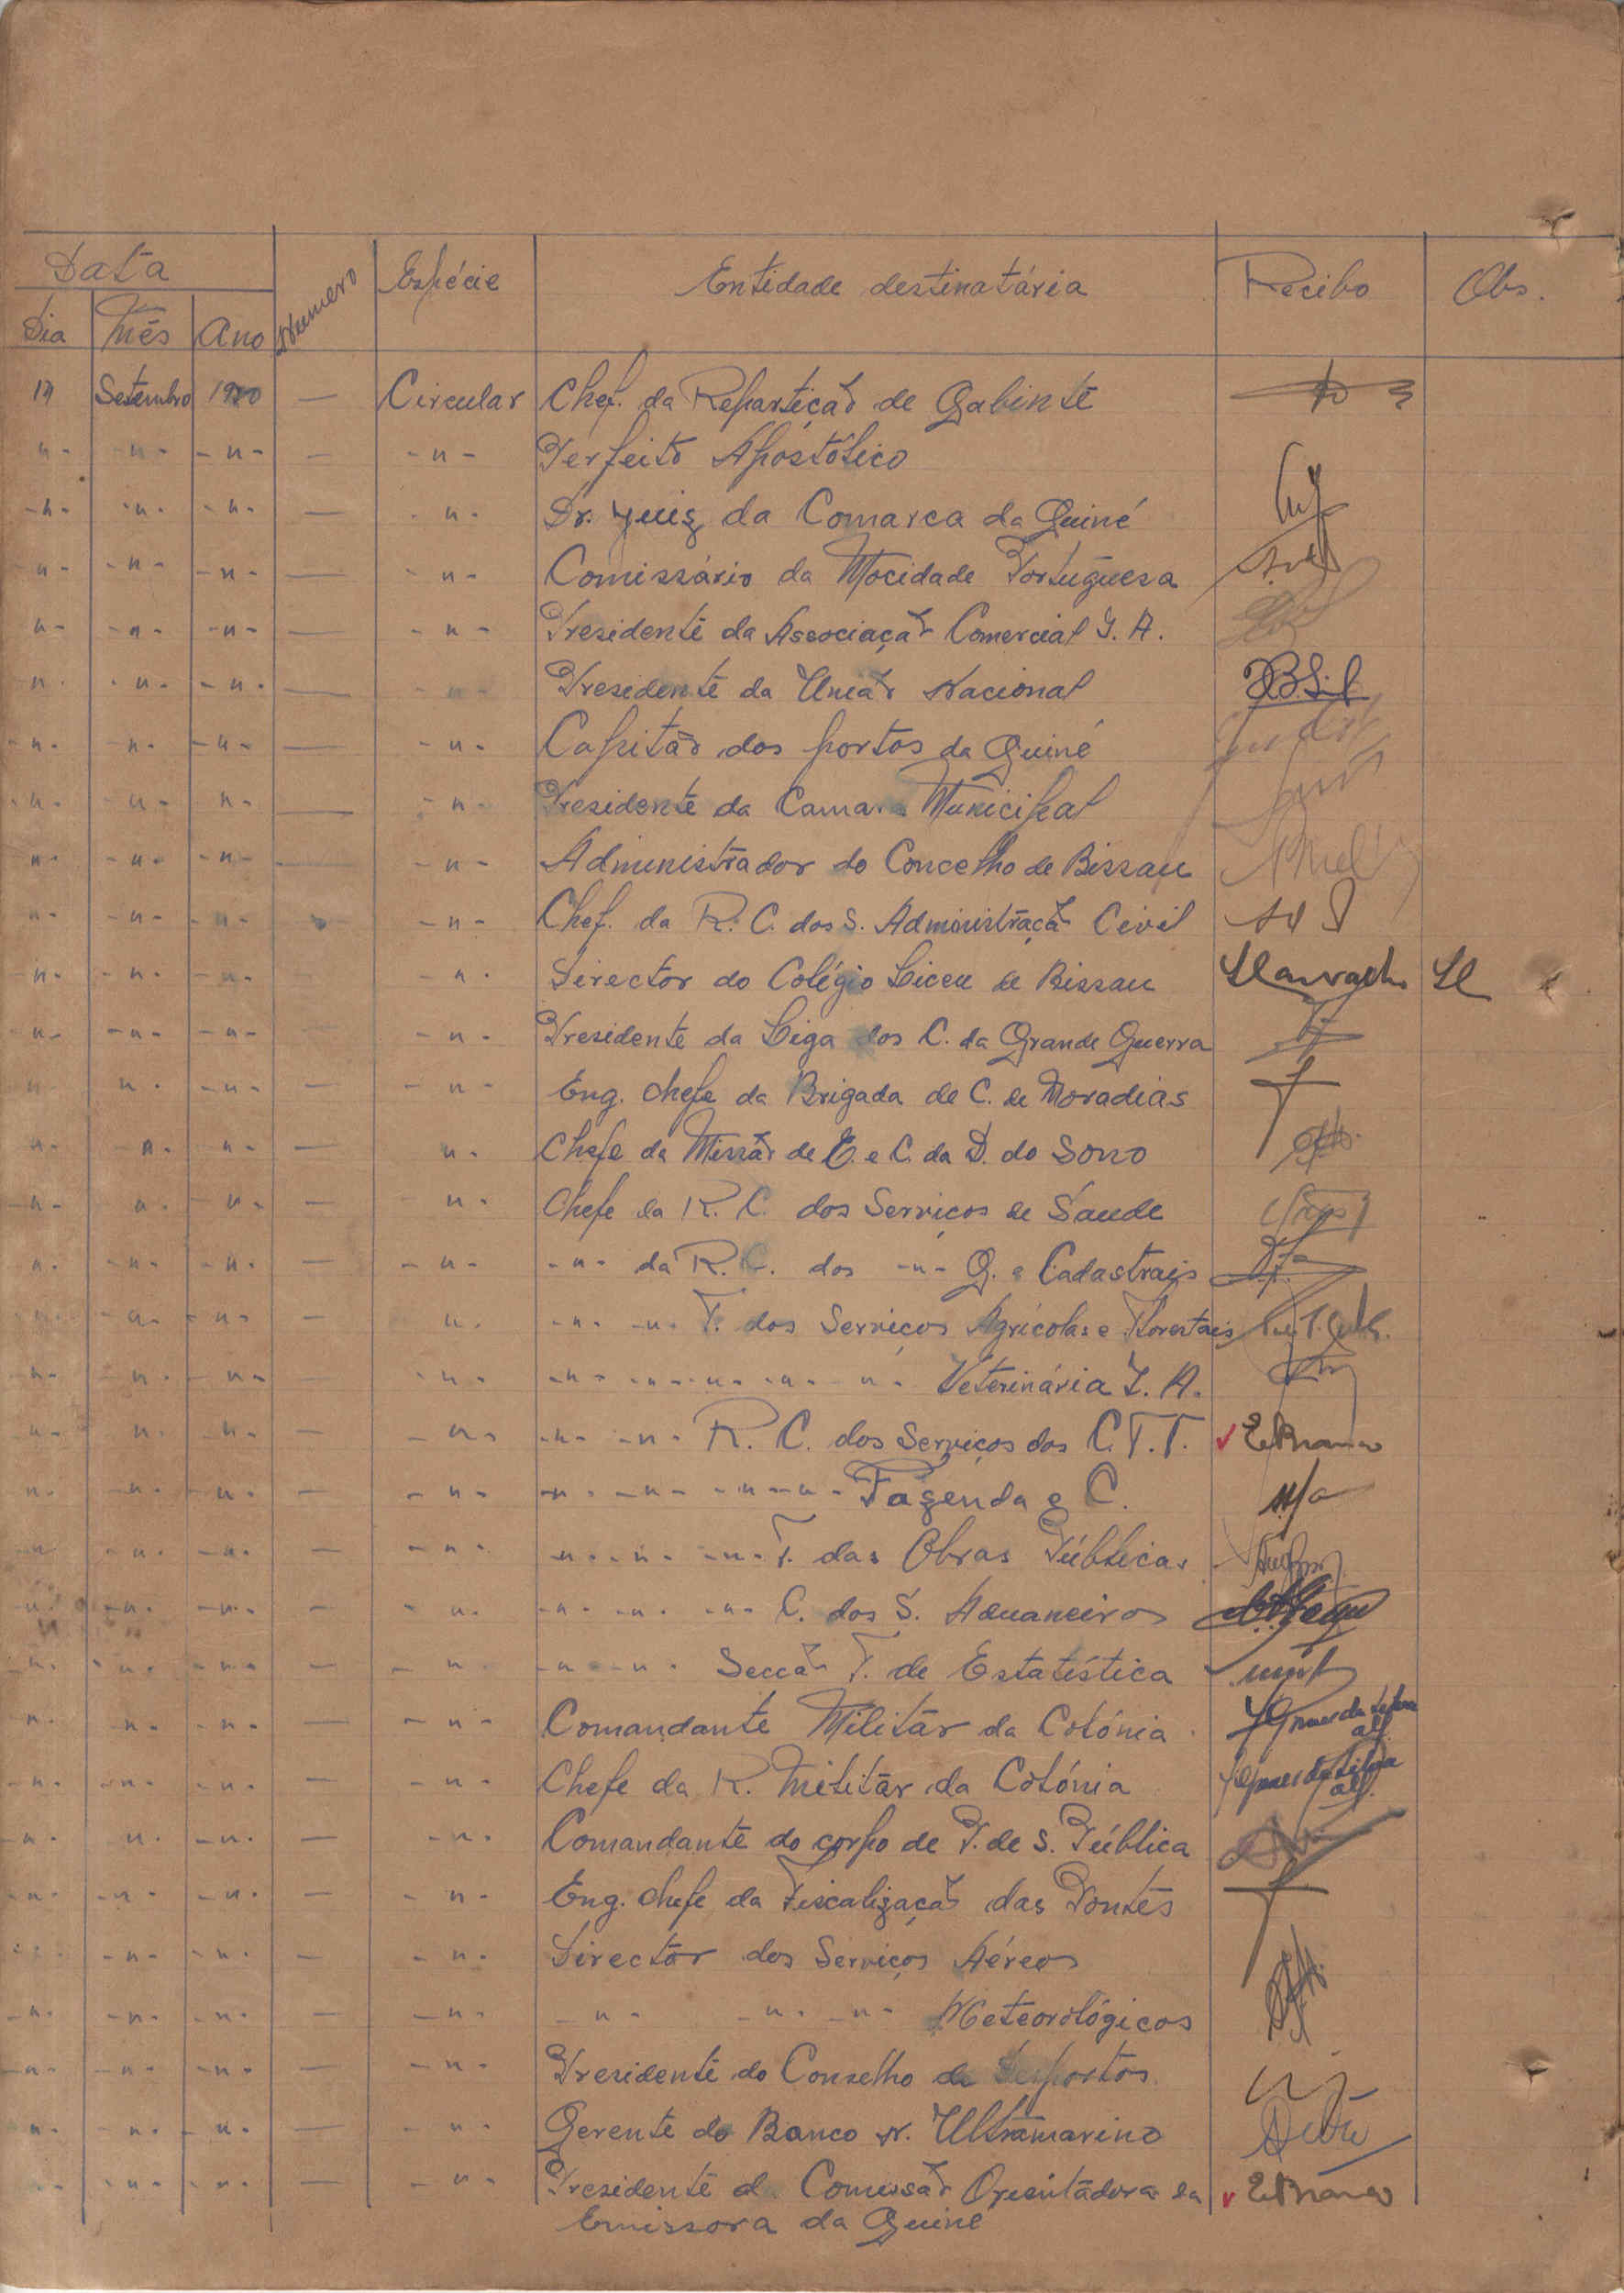 Data Numero Espécie Entidade destinatária Recibo Obs.
Dia Mês Ano
Setembro 1950 — Circular Chef. da Repartição de Gabinte
" - - " - - " - — - " - Perfeito Apóstólico
- " - - " - - " - — - " - Dr. Juiz da Comarca da Guiné
" - - " - - " - — - " - Comissário da Mocidade Portuguesa
" - - " - - " - — - " - Presidente da Associação Comercial I. A.
" - - " - - " - — - " - Presidente da União Nacional
- " - - " - - " - — - " - Capitão dos portos da Guiné
- " - - " - " - — - " - Presidente da Camara Municipal
" - - " - - " - — - " - Administrador do Concelho de Bissau
" - - " - - " - - " - Chef. da R. C. dos S. Administração Civil
- " - - " - - " - - " - Director do Colégio Liceu de Bissau
- " - - " - - " - - " - Presidente da Liga dos C. da Grande Guerra
" - " - - " - — - " - Eng. Chefe da Brigada de C. de Moradias
" - - " - " - — " - Chefe da Missão de E. e C. da D. do Sono
- " - " - - " - — - " - Chefe da R. C. dos Serviços de Saude
" - - " - - " - — - " - - " - da R. C. dos - " - G. e Cadastrais
- " - - " - - " - — " - - " - - " - T. dos Serviços Agrícolas e Florestais
- " - - " - - " - — - " - - " - - " - " - - " - " - Veterinária I. A.
- " - " - - " - — - " - - " - - " - R. C. dos Serviços dos C.T.T.
" - - " - - " - — - " - - " - - " - - " - " - Fazenda e C.
- " - - " - - " - — - " - - " - - " - - " - T. das Obras Públicas
- " - - " - - " - — - " - - " - - " - - " - C. dos S. Aduaneiros
- " - - " - - " - — - " - - " - - " - Secção T. de Estatística
- " - - " - - " - — - " - Comandante Militar da Colónia
- " - - " - - " - — - " - Chefe da R. Militar da Colónia
- " - " - - " - — - " - Comandante do corpo de P. de S. Pública
- " - - " - - " - — - " - Eng. Chefe da Fiscalização das Pontes
- " - - " - - " - — - " - Director dos Serviços Aéreos
- " - - " - - " - — - " - - " - - " - - " - Meteorológicos
- " - - " - - " - — - " - Presidente do Conselho de Desportos
- " - - " - - " - — - " - Gerente do Banco N. Ultramarino
- " - - " - - " - — - " - Presidente d. Comissão Orientadora da
Emissora da Guiné